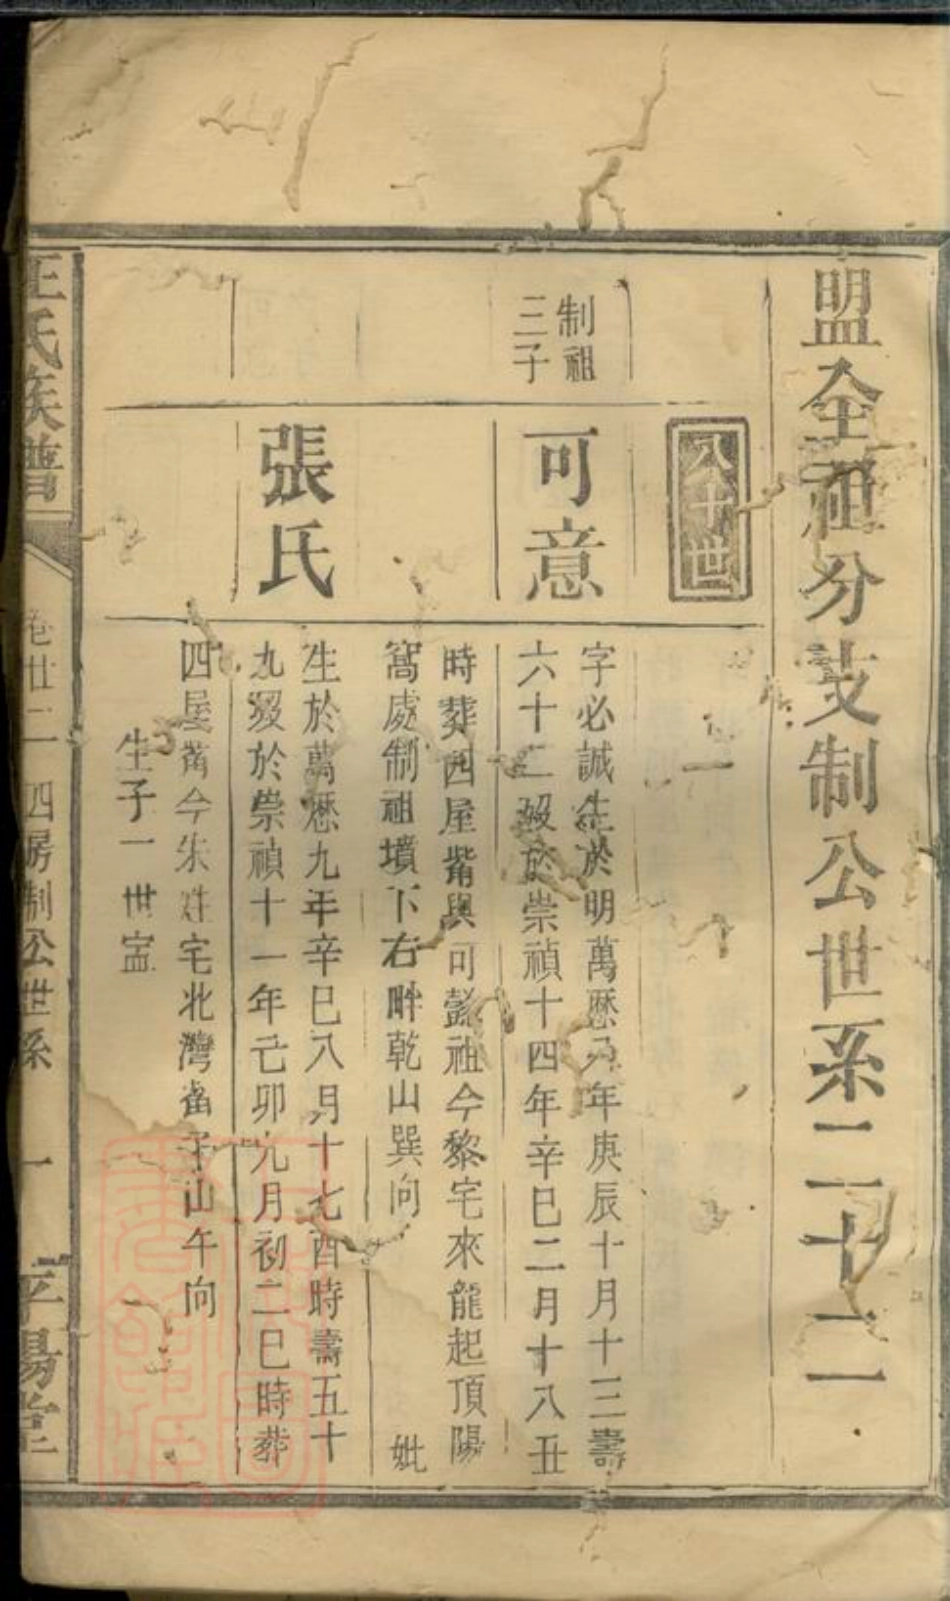 盟全祖分支制公世系二十二
八十世
制祖
三子
可意
字必誠生於明萬歷八年庚辰十月十三壽
六十二歿於崇禎十四年辛巳二月十八丑
時葬四屋觜與可懿祖今黎宅來龍起頂陽
窩處制祖墳下右畔乾山巽向 妣
張氏
生於萬歷九年辛巳八月十七酉時壽五十
九歿於崇禎十一年己卯九月初二巳時葬
四屋觜今朱姓宅北灣畬子山午向
生子一 世寍
王氏族譜
卷廿二 四房制公世系 一